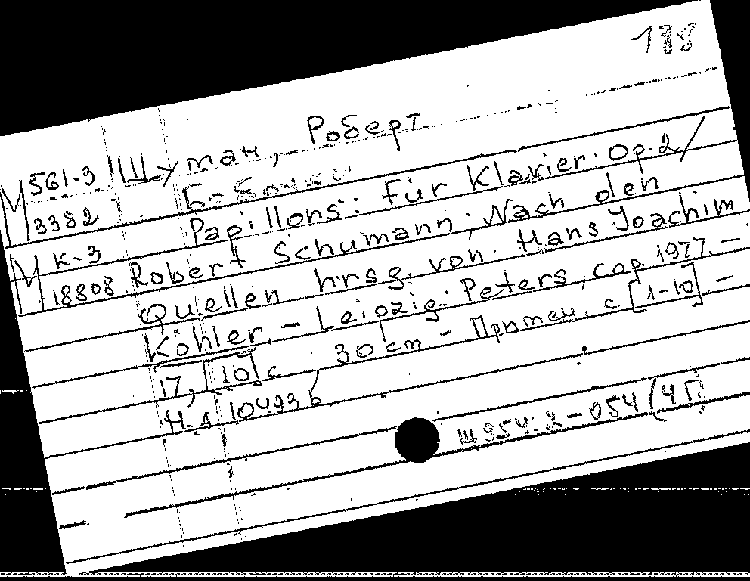 138
Шуман, Роберт
М 561-3
3382
Papillons: Für Klavier. Op. 2 /
М К-3
18808
Robert Schumann; Nach den
Quellen hrsg. von Hans Joachim
Köhler. – Leipzig: Peters, cop 1977. –
17, [10] с 30 cm – Примеч. с [1-10] –
Н.д 10493б
Ш 954: 2 – 054 (4Г)